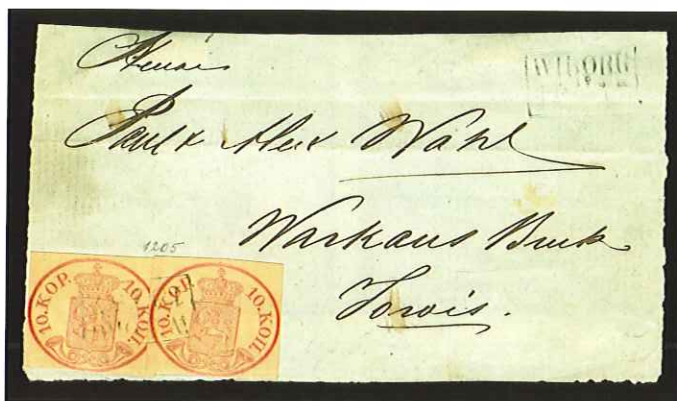 WIBORG
Paul & Alex Wahl
Warkaus Bruk
Jorois.
1205
10.KOP. 10.КОП. 10.KOP. 10.КОП.